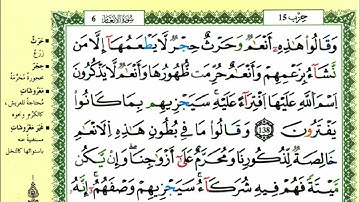 حزب 15
سورة الأنعام 6
وَقَالُوا۟ هَٰذِهِۦٓ أَنْعَٰمٌ وَحَرْثٌ حِجْرٌ لَّا يَطْعَمُهَآ إِلَّا مَن
نَّشَآءُ بِزَعْمِهِمْ وَأَنْعَٰمٌ حُرِّمَتْ ظُهُورُهَا وَأَنْعَٰمٌ لَّا يَذْكُرُونَ
اسْمَ اللَّهِ عَلَيْهَا افْتِرَآءً عَلَيْهِ سَيَجْزِيهِم بِمَا كَانُوا۟
يَفْتَرُونَ 138 وَقَالُوا۟ مَا فِى بُطُونِ هَٰذِهِ الْأَنْعَٰمِ
خَالِصَةٌ لِّذُكُورِنَا وَمُحَرَّمٌ عَلَىٰٓ أَزْوَٰجِنَا وَإِن يَكُن
مَّيْتَةً فَهُمْ فِيهِ شُرَكَآءُ سَيَجْزِيهِمْ وَصْفَهُمْ إِنَّهُۥ
حَرْثٌ
زَرْعٌ
حِجْرٌ
محجورة محرّمة
مَعْرُوشَاتٍ
محتاجة للعريش،
كالكرم ونحوه
غَيْرَ مَعْرُوشَاتٍ
مستغنية عنه
باستوائها كالنخل